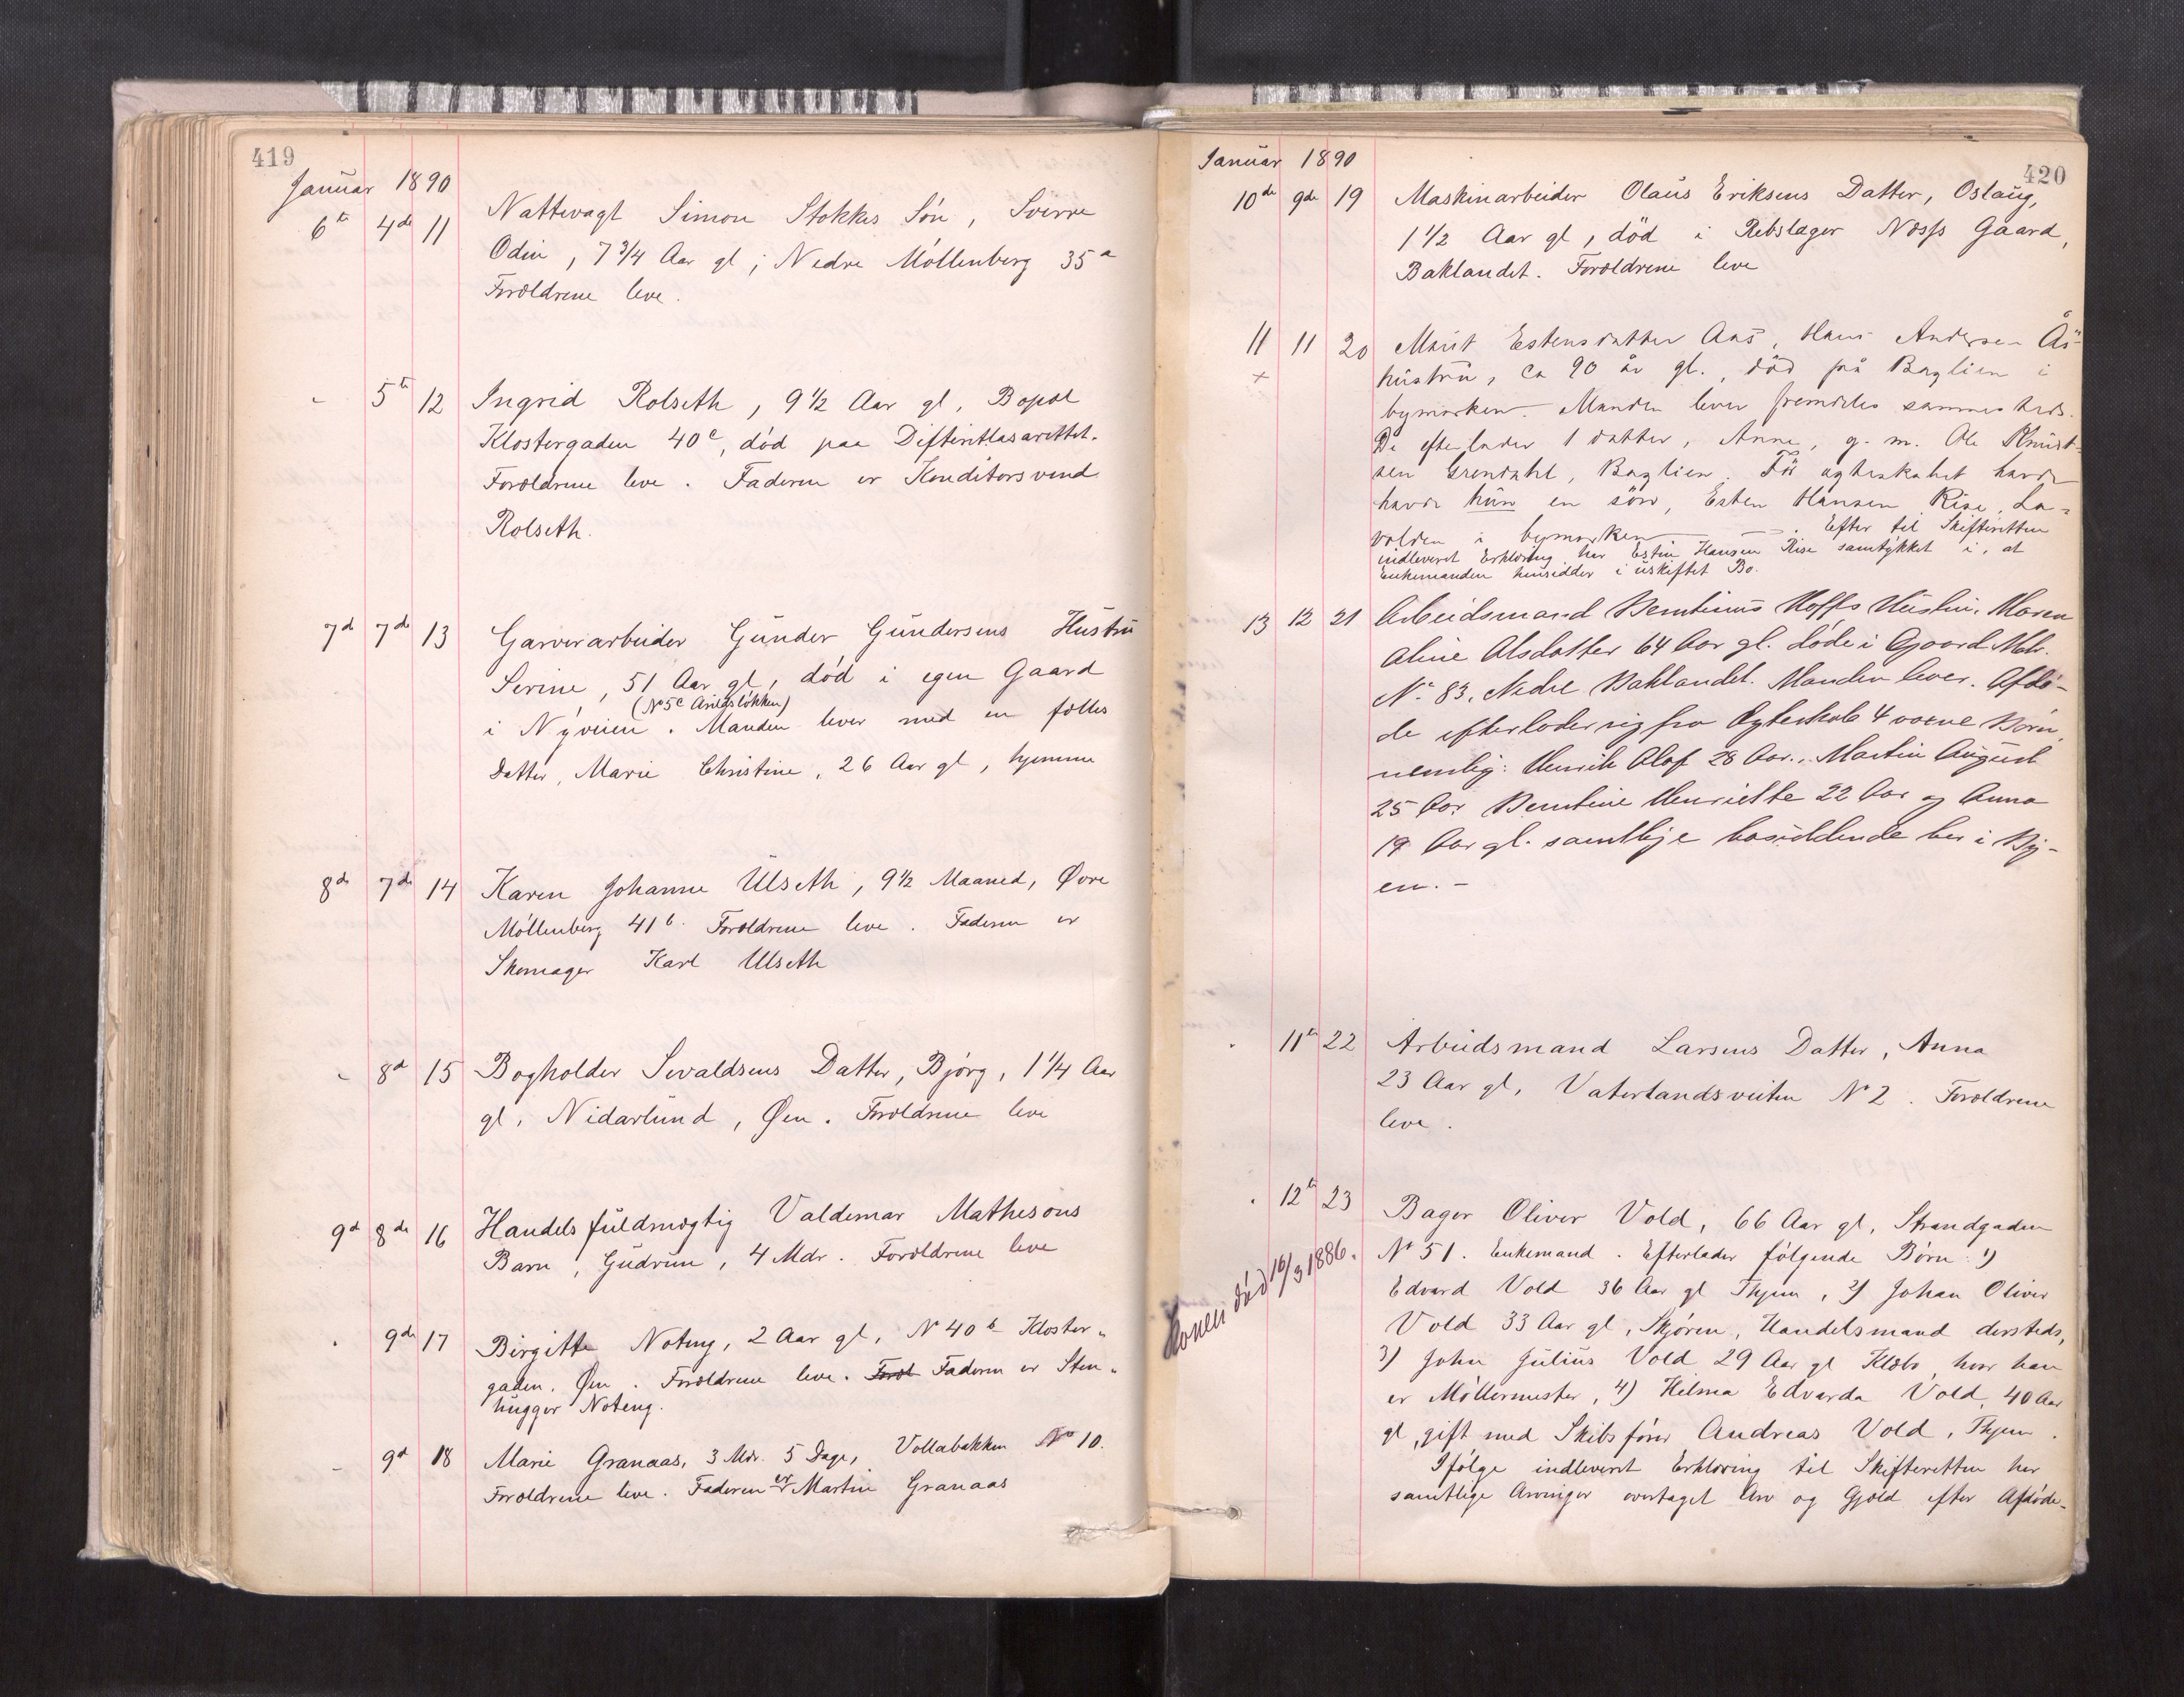 419
Januar 1890
6te 4de 11 Nattevagt Simon Stokkes Søn, Sverre
Odin, 7 3/4 Aar gl, Nedre Møllenberg 35a
Forældrene leve.
" 5te 12 Ingrid Rolseth, 9 1/2 Aar gl, Bopæl
Klostergaden 40c, død paa Difteritlasarettet.
Forældrene leve. Faderen er Konditorsvend
Rolseth.
7de 7de 13 Garverarbeider Gunder Gundersens Hustru
Serine, 51 Aar gl, død i egen Gaard
(No 5c Arildsløkken)
i Nyveien. Manden lever med en fælles
Datter, Marie Christine, 26 Aar gl, hjemme
8de 7de 14 Karen Johanne Ulseth, 9 1/2 Maaned, Øvre
Møllenberg 41b. Forældrene leve. Faderen er
Skomager Karl Ulseth
" 8de 15 Bogholder Sivaldsens Datter, Bjørg, 1 1/4 Aar
gl, Nidarlund, Øen. Forældrene leve
9de 8de 16 Handelsfuldmægtig Valdemar Mathesons
Barn, Gudrun, 4 Mdr. Forældrene leve
" 9de 17 Birgitte Noteng, 2 Aar gl, No 40b Kloster-
gaden, Øen. Forældrene leve. Foræl Faderen er Sten-
hugger Noteng.
" 9de 18 Marie Granaas, 3 Mdr. 5 Dage, Vollabakken No 10.
Forældrene leve. Faderen er Martin Granaas
420
Januar 1890
10de 9de 19 Maskinarbeider Olaus Eriksens Datter, Oslaug,
1 1/2 Aar gl, død i Rebslager Næss Gaard,
Baklandet. Forældrene leve
11 11 20 Marit Estensdatter Aas, Hans Andersen Ås'
+ hustru, ca 90 år gl., død på Baglien i
bymarken. Manden lever fremdeles sammesteds.
De efterlader 1 datter, Anne, g. m. Ole Knud-
sen Grendahl, Baglien. Før ægteskabet havde
havde hun en søn, Esten Hansen Rise, La-
volden i bymarken. Efter til Skifteretten
indleveret Erklæring har Esten Hansen Rise samtykket i, at
Enkemanden hensidder i uskiftet Bo.
13 12 21 Arbeidsmand Bentinus Hoffs Hustru, Maren
Aline Olsdatter 64 Aar gl. døde i Gaard Mtr.
No 83, Nedre Baklandet. Manden lever. Afdø-
de efterlader sig fra Ægteskab 4 voxne Børn,
nemlig: Henrik Olaf 28 Aar, Martin August
25 Aar Bentine Henriette 22 Aar og Anna
19 Aar gl. samtlige bosiddende her i By-
en. -
" 11te 22 Arbeidsmand Larsens Datter, Anna
23 Aar gl, Vaterlandsveiten No 2. Forældrene
leve.
" 12te 23 Bager Oliver Vold, 66 Aar gl, Strandgaden
No 51. Enkemand. Efterlader følgende Børn: 1)
Konen død 16/3 1886.
Edvard Vold 36 Aar gl Thjem, 2) Johan Oliver
Vold 33 Aar gl, Skjøren, Handelsmand dersteds,
3) John Julius Vold 29 Aar gl Klæbo, hvor han
er Møllermester, 4) Hilma Edvarda Vold, 40 Aar
gl, gift med Skibsfører Andreas Vold, Thjem.
Ifølge indleveret Erklæring til Skifteretten har
samtlige Arvinger overtaget Arv og Gjæld efter Afdøde.